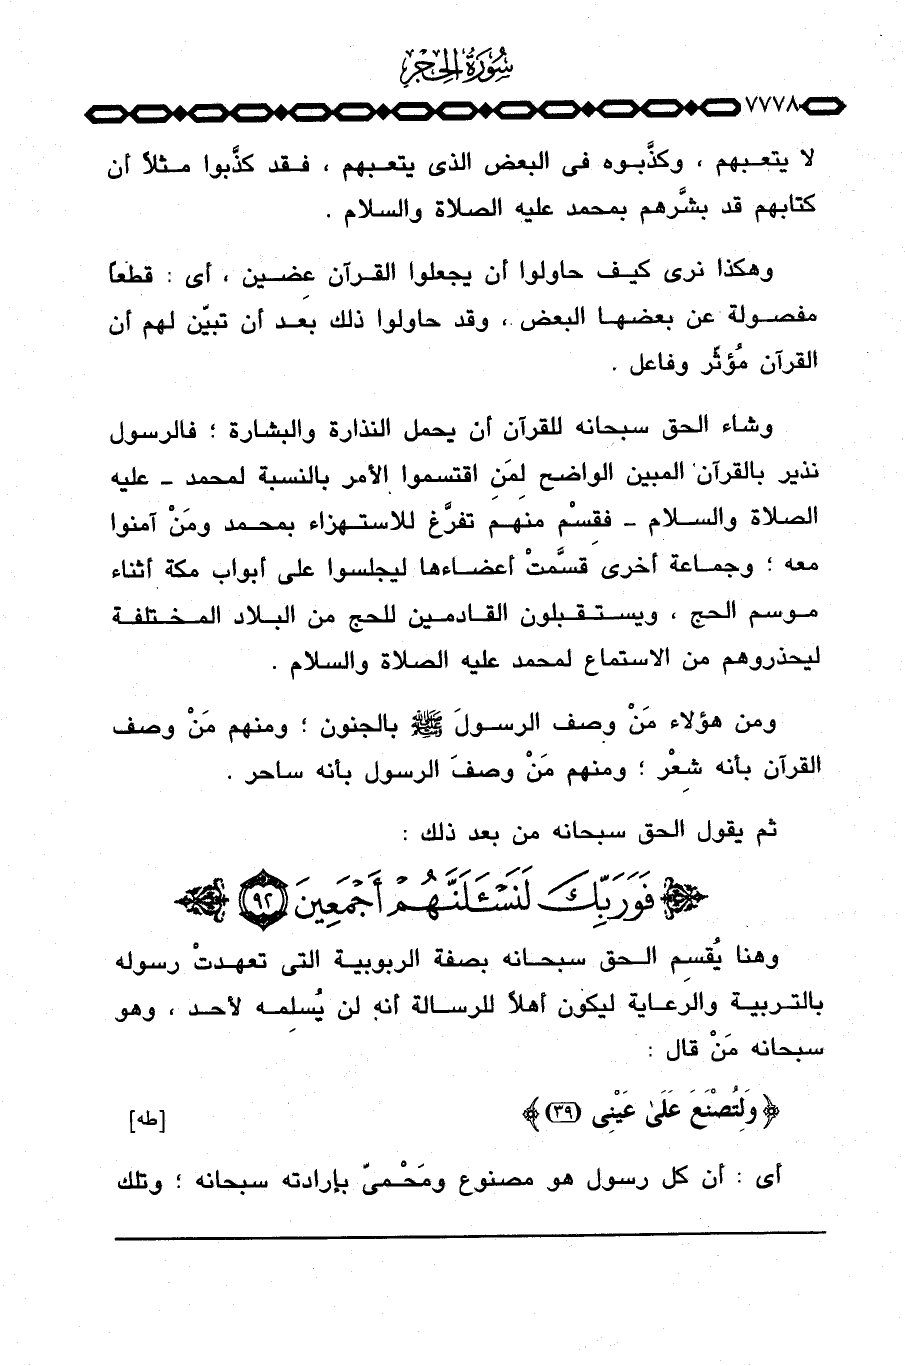 سُورَةُ الحِجْرِ
٧٧٧٨
لا يتعبهم ، وكذَّبوه فى البعض الذى يتعبهم ، فقد كذَّبوا مثلاً أن
كتابهم قد بشَّرهم بمحمد عليه الصلاة والسلام .
وهكذا نرى كيف حاولوا أن يجعلوا القرآن عِضين ، أى : قطعاً
مفصولة عن بعضها البعض ، وقد حاولوا ذلك بعد أن تبيّن لهم أن
القرآن مُؤثّر وفاعل .
وشاء الحق سبحانه للقرآن أن يحمل النذارة والبشارة ؛ فالرسول
نذير بالقرآن المبين الواضح لِمَنِ اقتسموا الأمر بالنسبة لمحمد ـ عليه
الصلاة والسلام ـ فقِسْم منهم تفرَّغ للاستهزاء بمحمد ومَنْ آمنوا
معه ؛ وجماعة أخرى قسَّمتْ أعضاءها ليجلسوا على أبواب مكة أثناء
موسم الحج ، ويستقبلون القادمين للحج من البلاد المختلفة
ليحذروهم من الاستماع لمحمد عليه الصلاة والسلام .
ومن هؤلاء مَنْ وصف الرسولَ ﷺ بالجنون ؛ ومنهم مَنْ وصف
القرآن بأنه شِعْر ؛ ومنهم مَنْ وصفَ الرسول بأنه ساحر .
ثم يقول الحق سبحانه من بعد ذلك :
فَوَرَبِّكَ لَنَسْـَٔلَنَّهُمْ أَجْمَعِينَ ٩٢
وهنا يُقسِم الحق سبحانه بصفة الربوبية التى تعهدتْ رسوله
بالتربية والرعاية ليكون أهلاً للرسالة أنه لن يُسلِمه لأحد ، وهو
سبحانه مَنْ قال :
﴿ وَلِتُصْنَعَ عَلَىٰ عَيْنِى (٣٩) ﴾ [طه]
أى : أن كل رسول هو مصنوع ومَحْمىّ بإرادته سبحانه ؛ وتلك